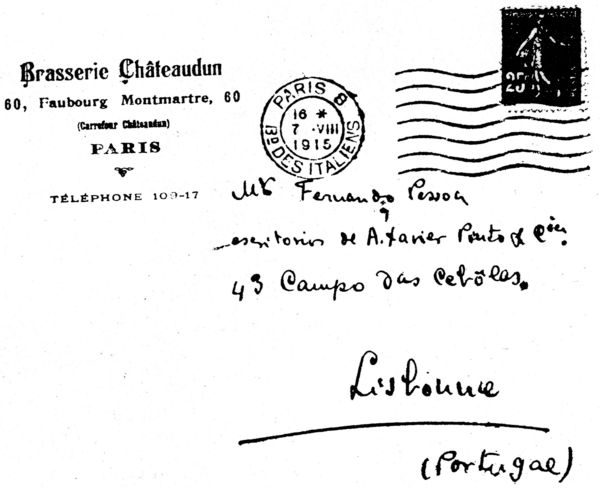 Brasserie Châteaudun
60, Faubourg Montmartre, 60
(Carrefour Châteaudun)
PARIS
TÉLÉPHONE 109-17
PARIS 8
16 *
7 - VIII
1915
Bd DES ITALIENS
25
Mr Fernando Pessoa
escritorios de A. Xavier Pinto & Cia.
43 Campo das Cebôlas.
Lisbonne
(Portugal)